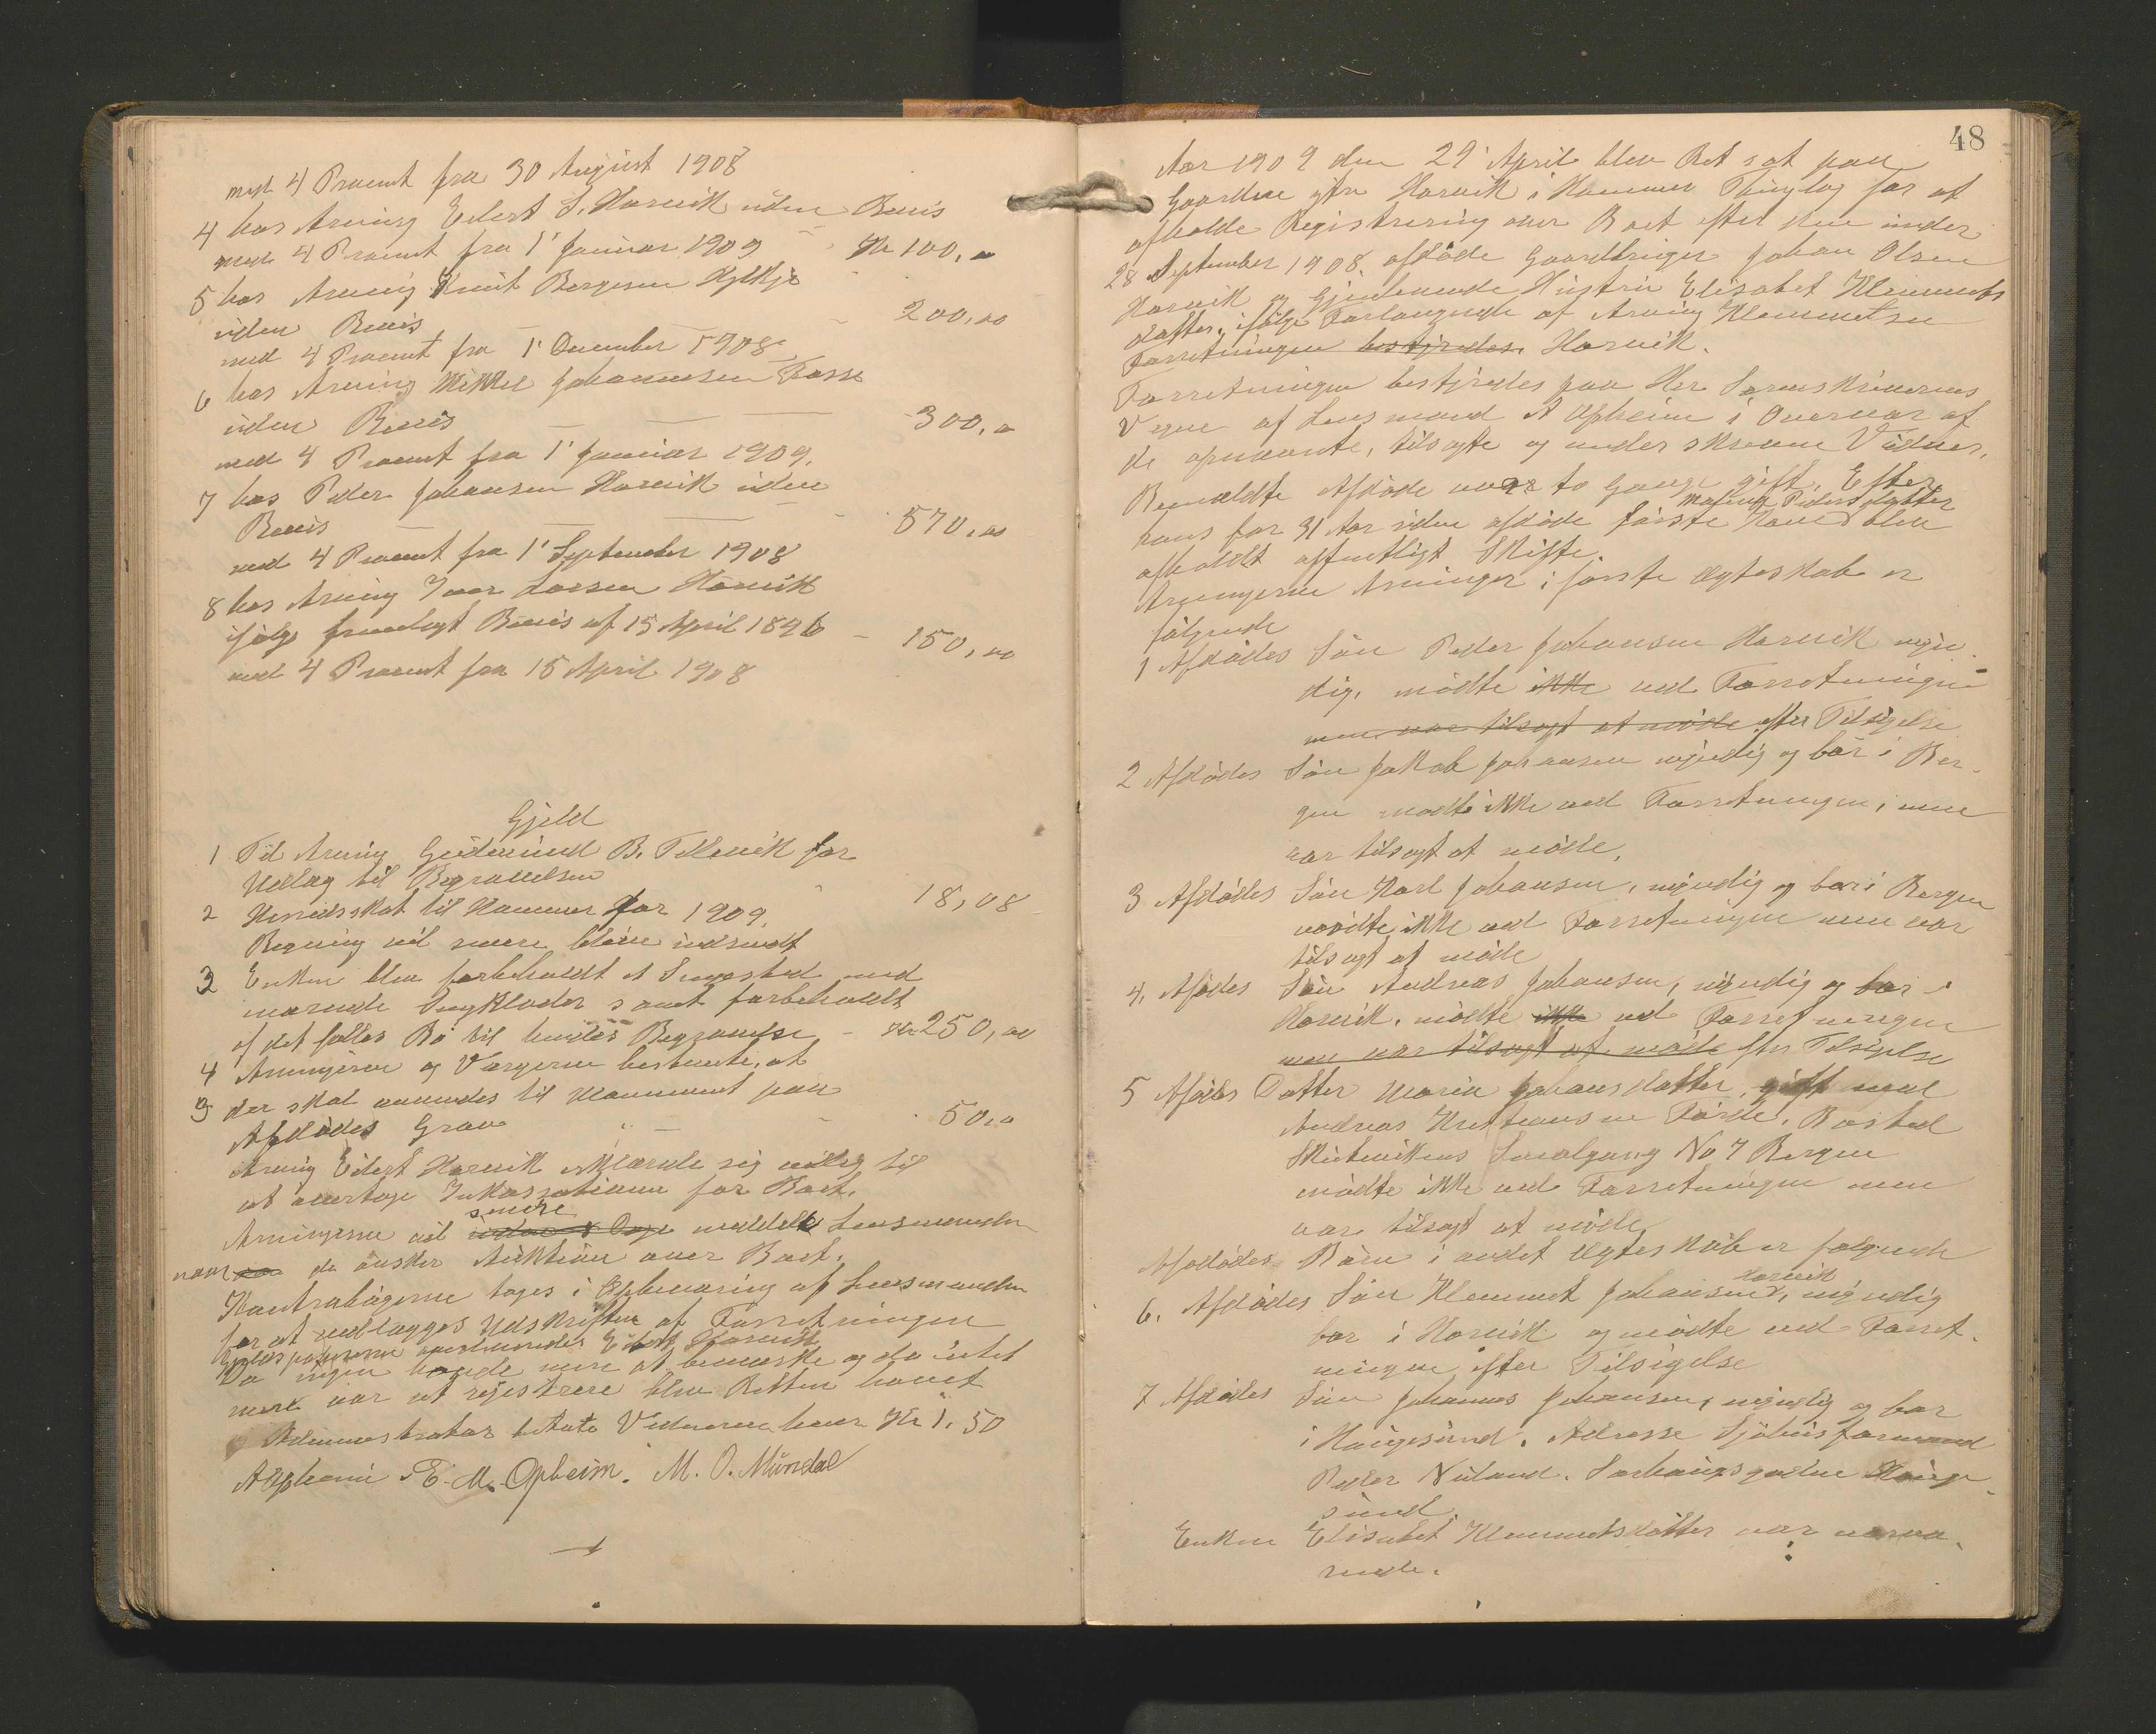 med 4 Procent fra 30 August 1908
4 hos Arving Eilert S. Horvik uden Bevis
med 4 Procent fra 1' Januar 1909 Kr 100,00
5 hos Arving Knut Borgesen
uden Bevis 200,00
med 4 Procent fra 1' December 1908
6 hos Arving Mikkel Johannesen Fosse
uden Bevis 300,00
med 4 Procent fra 1' Januar 1909.
7 hos Peder Johansen Horvik uden
Bevis 570,00
med 4 Procent fra 1' September 1908
8 hos Arving Ivar Larsen Horvik
ifölge fremlagt Bevis af 15 April 1896 150,00
med 4 Procent fra 15 April 1908
Gjeld
1 Til Arving Gudmund B. Tellevik for
Udlæg til Begravelsen 18,08
2 Herredsskat til Hammer for 1909.
Regning vil senere blive indsendt
3 Enken blev forbeholdt et Sengested med
værende Sengklæder samt forbeholdt
af det fælles Bo til hendes Begravelse Kr 250,00
4 Arvingerne og Værgerne bestemte, at
5 der skal anvendes til Monument paa
Afdödes Grav 50,00
Arving Eilert Horvik erklærede sig villig til
at overtage Inkassationen for Boet.
senere
Arvingerne vil inden 8 Dage meddele Lensmanden
naar de önsker Auktion over Boet.
Kontrabögerne toges i Opbevaring af Lensmanden
for at vedlægges Udskriften af Forretningen
Gjeldspapirerne Eilert Horvik
Da ingen havde mere at bemærke og da intet
mere var at rejistrere blev Retten hævet
Administrator betalte Vidnerne hver Kr 1.50
A Opheim E. M. Opheim. M. O. Mündal
48
Aar 1909 den 29' April blev Ret sat paa
Gaarden ytre Horvik i Hammer Thinglag for at
afholde Registrering over Boet efter den under
28 September 1908 afdöde Gaardbruger Johan Olsen
Horvik og Gjenlevende Hustru Elisabet Klemmets
datter, ifölge Forlangende af Arving Klemmetsen
Forretningen bestyredes. Horvik.
Forretningen bestyredes paa Hr. Sorenskriverens
Vegne af Lensmand A Opheim i Overvær af
de opnævnte, tilsagte og underskrevne Vidner.
Bemældte Afdöde var to Gange gift. Efter
Peders datter
hans for 31 Aar siden afdöde förste Kone blev
afholdt offentligt Skifte.
Arvingerne Arvinger i förste Ægteskab er
fölgende
1 Afdödes Sön Peder Johansen Horvik myn-
dig, mödte ikke ved Forretningen
men var tilsagt at möde efter Tilsigelse
2 Afdödes Sön Jakob Johansen myndig og bor i Ber-
gen mödte ikke ved Forretningen, men
var tilsagt at möde.
3 Afdödes Sön Karl Johansen, myndig og bor i Bergen
mödte ikke ved Forretningen men var
tilsagt at möde
4. Afdödes Sön Andreas Johansen, myndig og bor i
Horvik. mödte ikke ved Forretningen
men var tilsagt at möde efter Tilsigelse
5 Afdödes Datter Maria Johansdatter, gift med
Andreas Kristiansen Förde. Bosted
Skuteviksveien Smalgang No 7 Bergen
mödte ikke ved Forretningen men
var tilsagt at möde
Afdödes Börn i andet Ægteskab er fölgende
Horvik
6. Afdödes Sön Klemmet Johansen, myndig
bor i Horvik og mödte ved Forret-
ningen efter Tilsigelse
7 Afdödes Sön Johannes Johansen, myndig og bor
i Haugesund. Adresse Sjöhusformand
Peder Nuland. Sörhaugsgaden Hauge-
sund.
Enken Elisabet Klemmetsdatter var nærvæ-
rende.